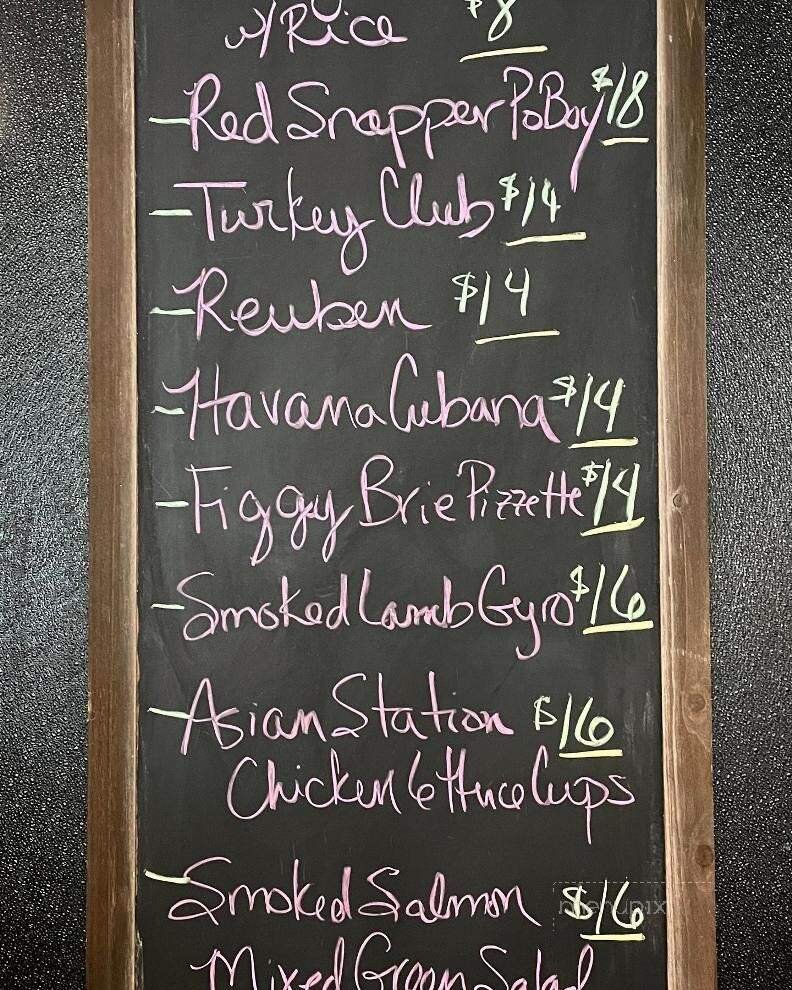 w/Rice $8
- Red Snapper PoBoy $18
- Turkey Club $14
- Reuben $14
- Havana Cubana $14
- Figgy Brie Pizzette $14
- Smoked Lamb Gyro $16
- Asian Station $16
Chicken Lettuce Cups
- Smoked Salmon $16
menupix
Mixed Green Salad